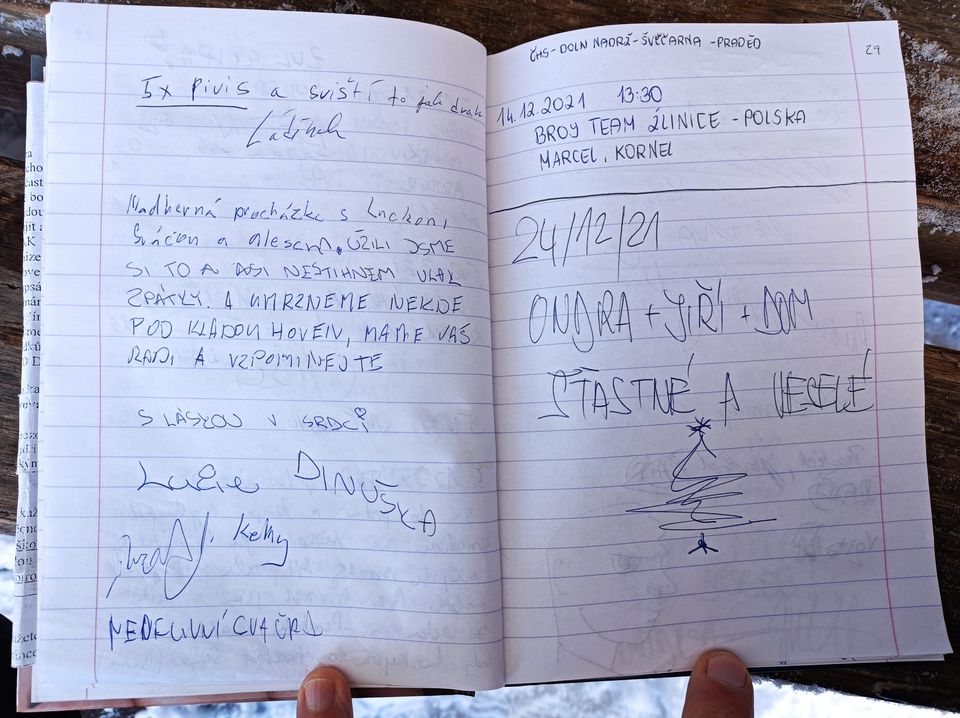 5x pivis a sviští to jak drak
Nadherná procházka s
a alesem. UŽILI JSME
SI TO A ASI NESTIHNEM VLAK
ZPÁTKY. A UMRZNEME NEKDE
POD KLADOU HOVEN, MAME VAŠ
RADI A VZPOMINEJTE
S LÁSKOU V SRDCI
Lucie DINUŠKA
Kelly
ČHS - DOLN NADRŽ - ŠVÝČARNA - PRADĚD
29
14.12.2021 13:30
BROY TEAM ŽLINICE - POLSKA
MARCEL, KORNEL
24/12/21
ONDRA + JIŘÍ + DOM
ŠŤASTNÉ A VESELÉ